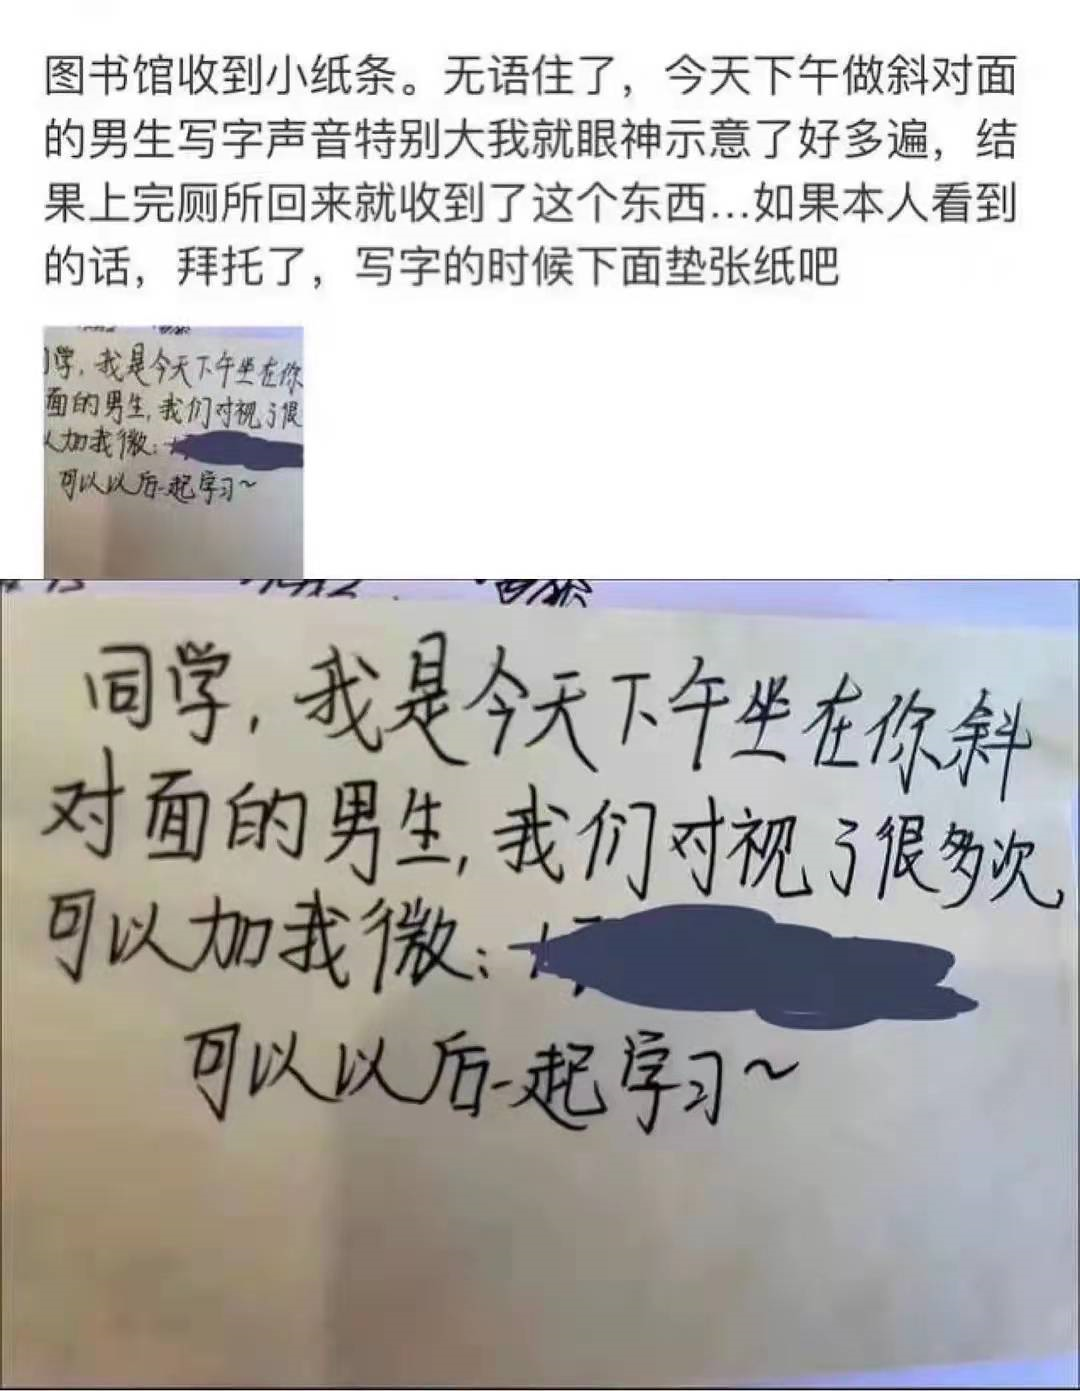 图书馆收到小纸条。无语住了，今天下午做斜对面
的男生写字声音特别大我就眼神示意了好多遍，结
果上完厕所回来就收到了这个东西...如果本人看到
的话，拜托了，写字的时候下面垫张纸吧
学，我是今天下午坐在你
面的男生，我们对视了很
加我微：
可以以后一起学习~
同学，我是今天下午坐在你斜
对面的男生，我们对视了很多次，
可以加我微：
可以以后一起学习~